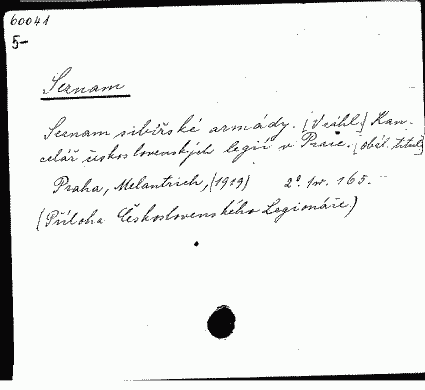 60041
5-
Seznam
Seznam sibiřské armády. [V záhl.] Kan-
celář československých legií v Praze. [obál. titul]
Praha, Melantrich, (1919) 2°. 165.
(Příloha Československého Legionáře)